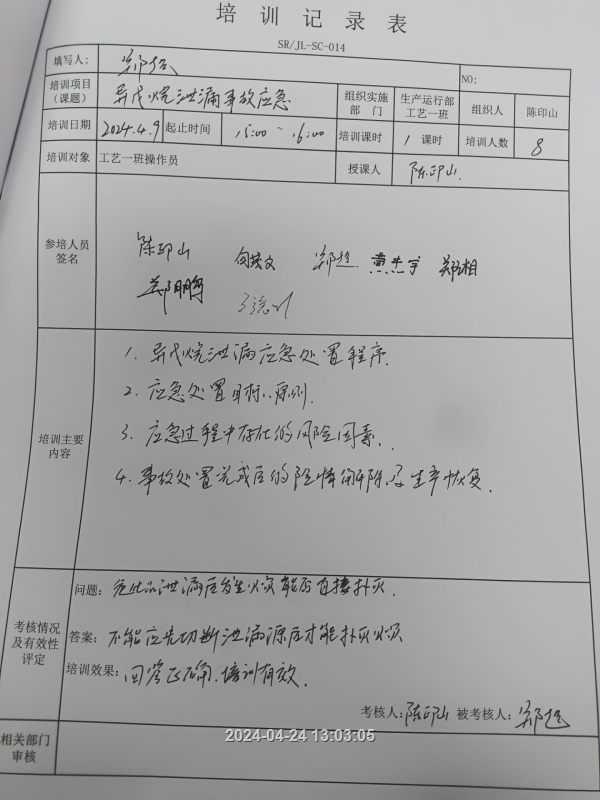 培训记录表
SR/JL-SC-014
填写人： 郑超 NO:
培训项目（课题） 异戊烷泄漏事故应急 组织实施部门 生产运行部工艺一班 组织人 陈印山
培训日期 2024.4.9 起止时间 15:00 ~ 16:00 培训课时 1 课时 培训人数 8
培训对象 工艺一班操作员 授课人 陈印山.
参培人员签名
陈印山 郑超 郑相
郑鹏
培训主要内容
1. 异戊烷泄漏应急处置程序.
2. 应急处置目标、原则.
3. 应急过程中存在的风险因素.
4. 事故处置完成后的险情解除及生产恢复.
考核情况及有效性评定
问题： 泄漏后发生火灾能否直接扑灭.
答案： 不能应先切断泄漏源后才能扑灭火灾
培训效果： 回答正确.培训有效.
考核人：陈印山 被考核人：郑超
相关部门审核
2024-04-24 13:03:05